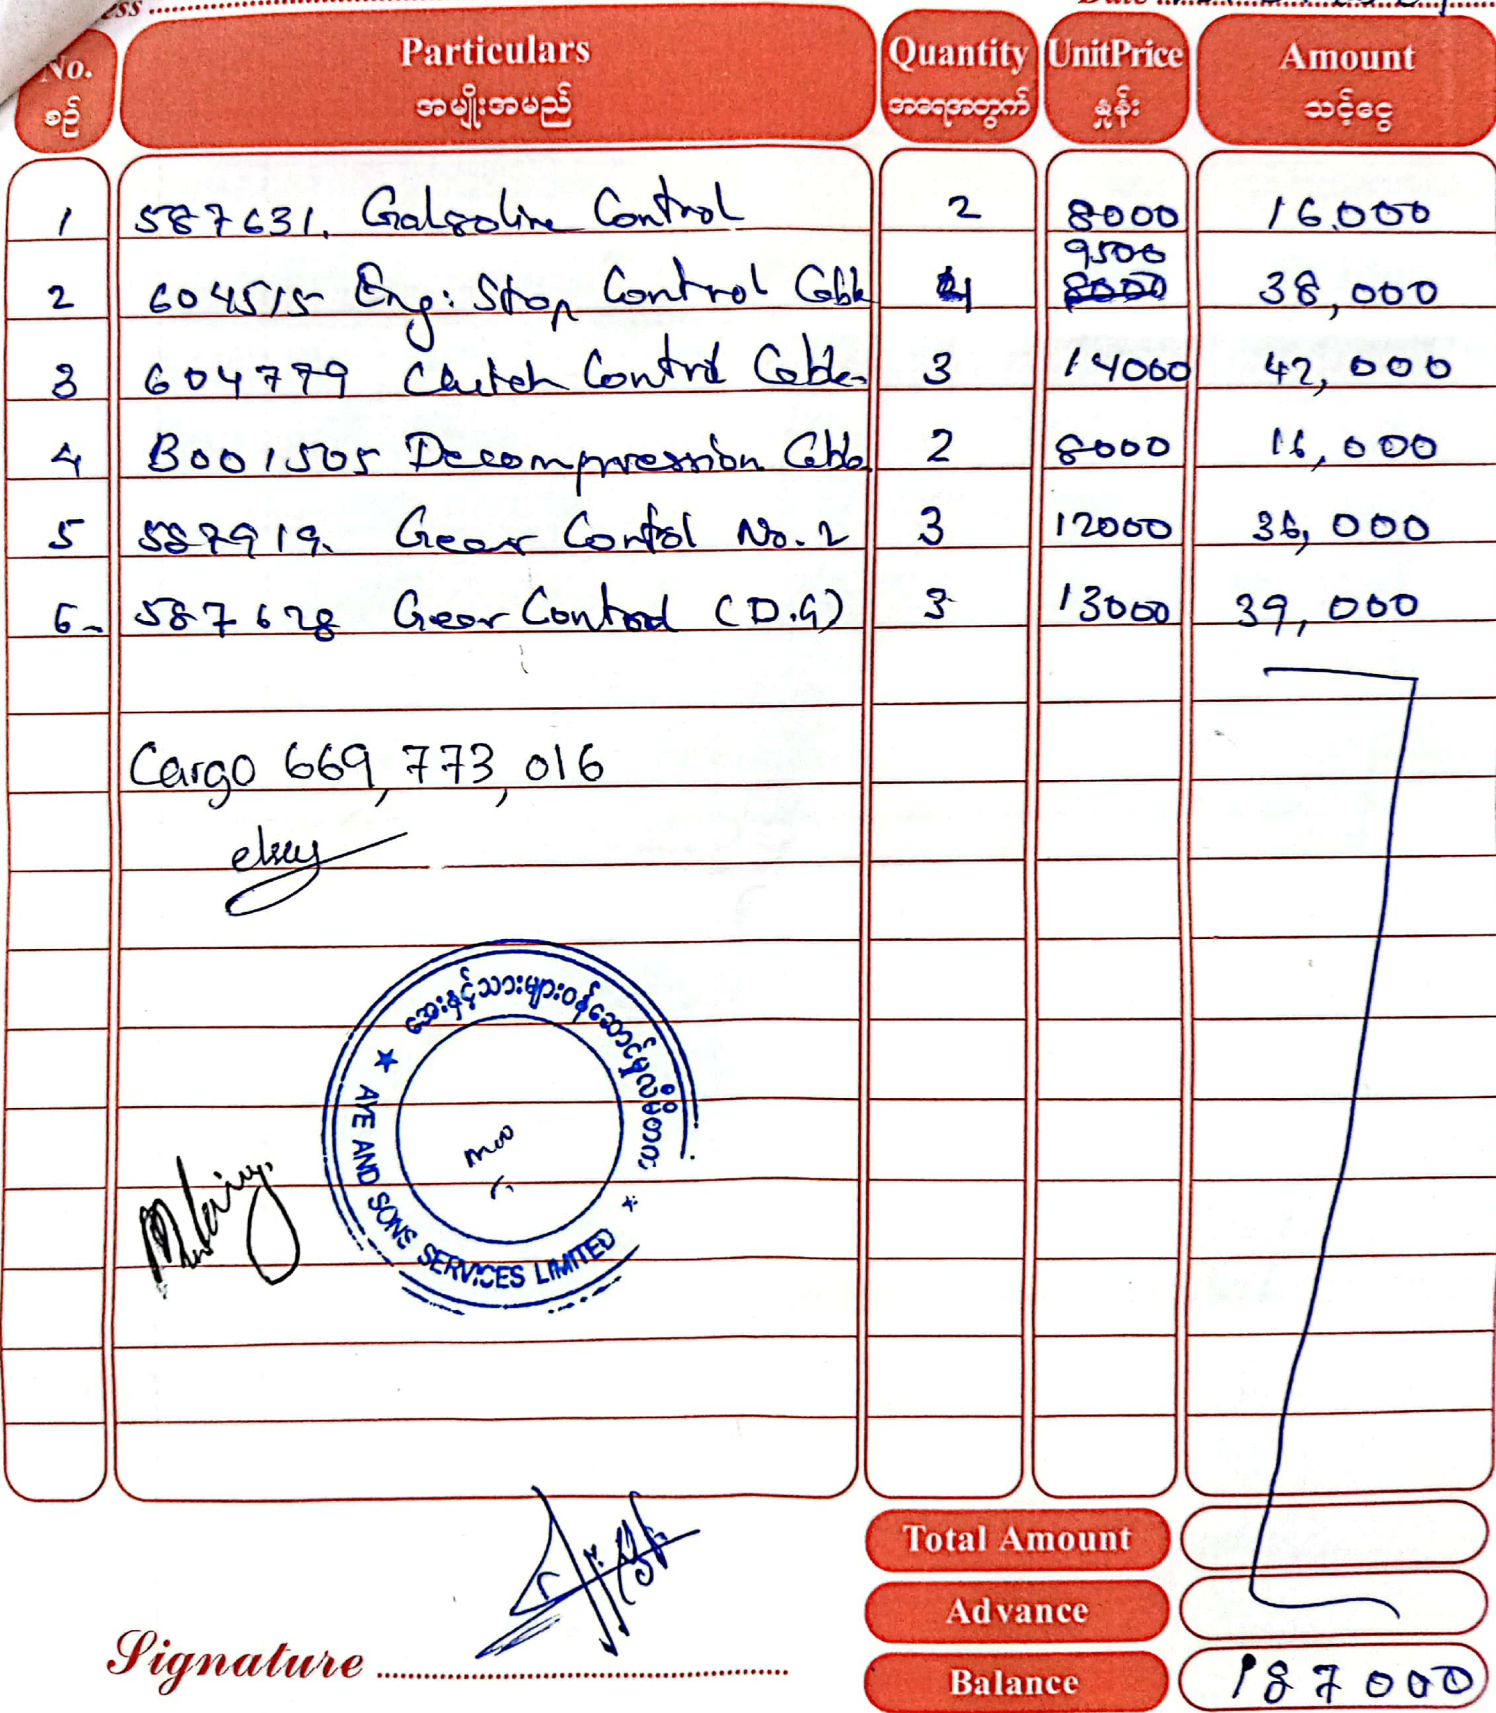 ess
Date
No. Particulars Quantity UnitPrice Amount
စဉ် အမျိုးအမည် အရေအတွက် နှုန်း သင့်ငွေ
1 587631. Galsoline Control 2 8000 16,000
9500
2 604515 Eng: Stop Control Cable 4 8000 38,000
3 604779 Clutch Control Cable 3 14000 42,000
4 B001505 Decompression Cable 2 8000 16,000
5 587919. Gear Contol No. 2 3 12000 36,000
6 587628 Gear Control (D.G) 3 13000 39,000
Cargo 669,773,016
အေးနှင့်သားများဝန်ဆောင်မှုလီမိတက်
AYE AND SONS SERVICES LIMITED
Total Amount
Advance
Signature
Balance 187000